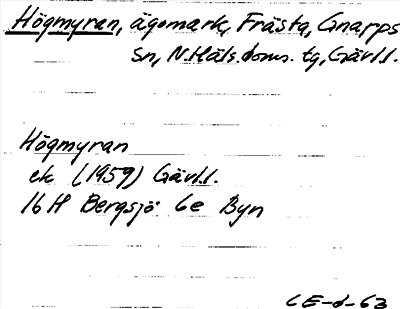 Högmyran, ägomark, Frästa, Gnarps
Sn, N.Häls.doms. tg, Gävl.l.
Högmyran
ek (1959) Gävl.l.
16H Bergsjö 6e Byn
CE-d-63